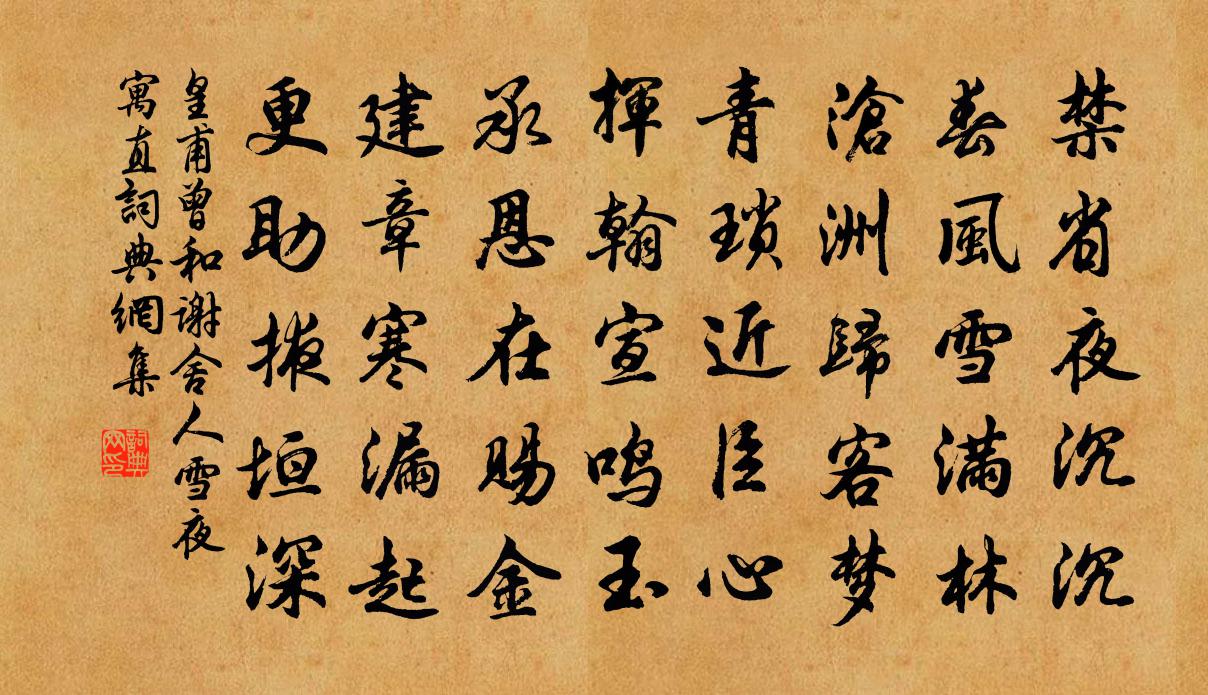 禁省夜沉沉
春風雪满林
滄洲歸客梦
青瑣近臣心
揮翰宣鸣玉
承恩在賜金
建章寒漏起
更助掖垣深
皇甫曾和谢舍人雪夜
寓直詞典網集
詞典
网印